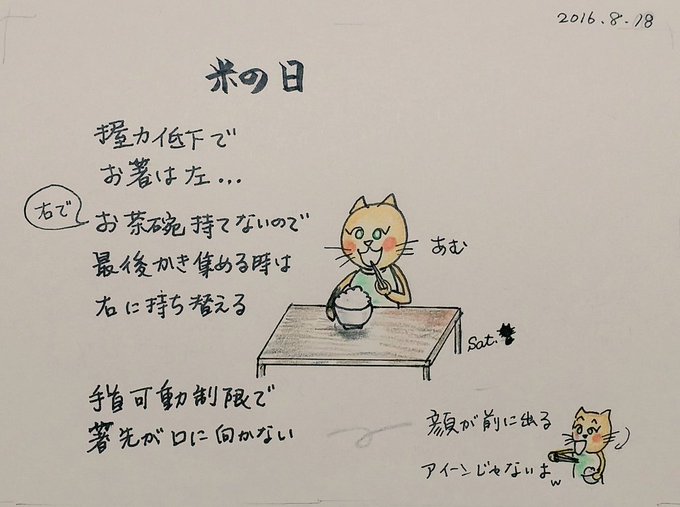 2016.8.18
米の日
握力低下で
お箸は左...
右で
お茶碗持てないので
最後かき集める時は
右に持ち替える
あむ
Sat.
手首可動制限で
箸先が口に向かない
顔が前に出る
アイーンじゃないよw